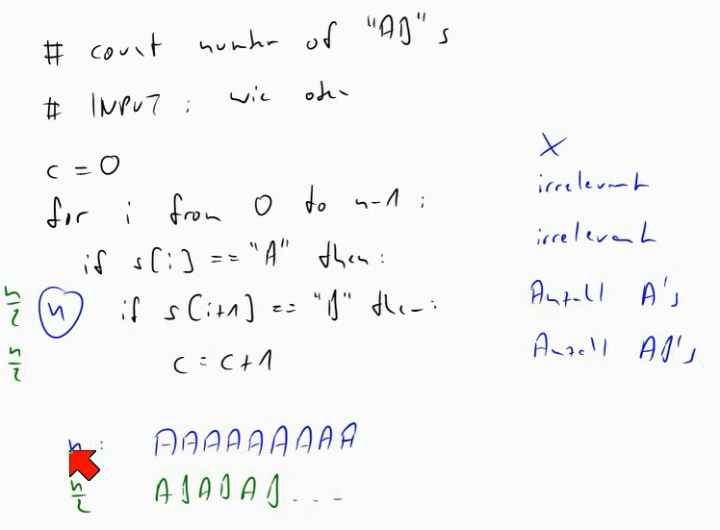 # count number of "AB" s
# INPUT : wie oben
c = 0
for i from 0 to n-1 :
if s[i] == "A" then :
n/2 n if s[i+1] == "B" then :
n/2 c = c+1
X
irrelevant
irrelevant
Anzahl A's
Anzahl AB's
n : AAAAAAAAA
n/2 ABABAB...